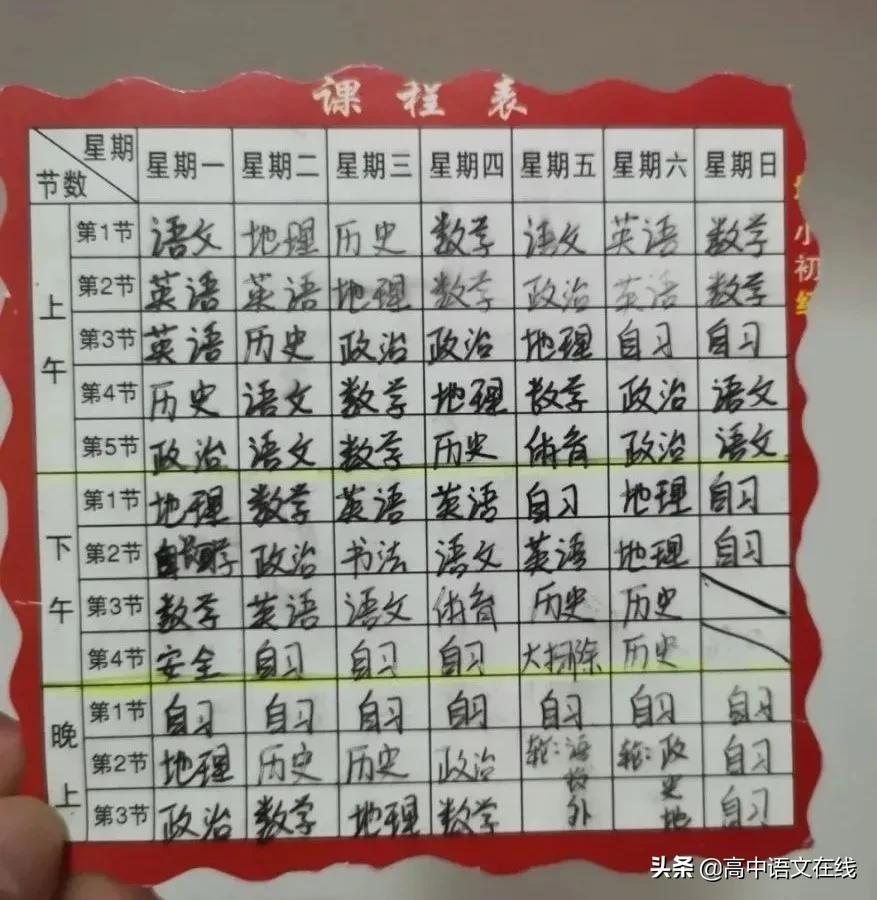 课程表
星期 星期一 星期二 星期三 星期四 星期五 星期六 星期日
节数
上午
第1节 语文 地理 历史 数学 语文 英语 数学
第2节 英语 英语 地理 数学 政治 英语 数学
第3节 英语 历史 政治 政治 地理 自习 自习
第4节 历史 语文 数学 地理 数学 政治 语文
第5节 政治 语文 数学 历史 体育 政治 语文
下午
第1节 地理 数学 英语 英语 自习 地理 自习
第2节 政治 书法 语文 英语 地理 自习
第3节 数学 英语 语文 体育 历史 历史
第4节 安全 自习 自习 自习 大扫除 历史
晚上
第1节 自习 自习 自习 自习 自习 自习 自习
第2节 地理 历史 历史 政治 轮:语 轮:政 自习
数 史
第3节 政治 数学 地理 数学 外 地 自习
小
初
头条 @高中语文在线